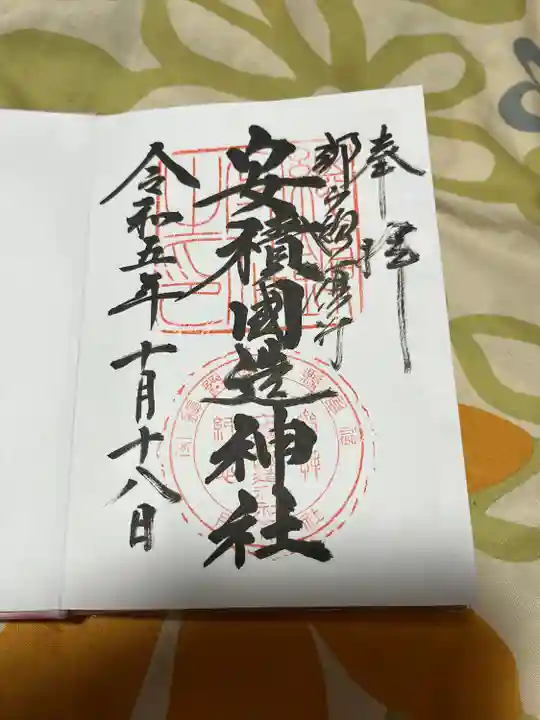 奉拝
郡山總鎮守
安積國造神社
令和五年十月十八日